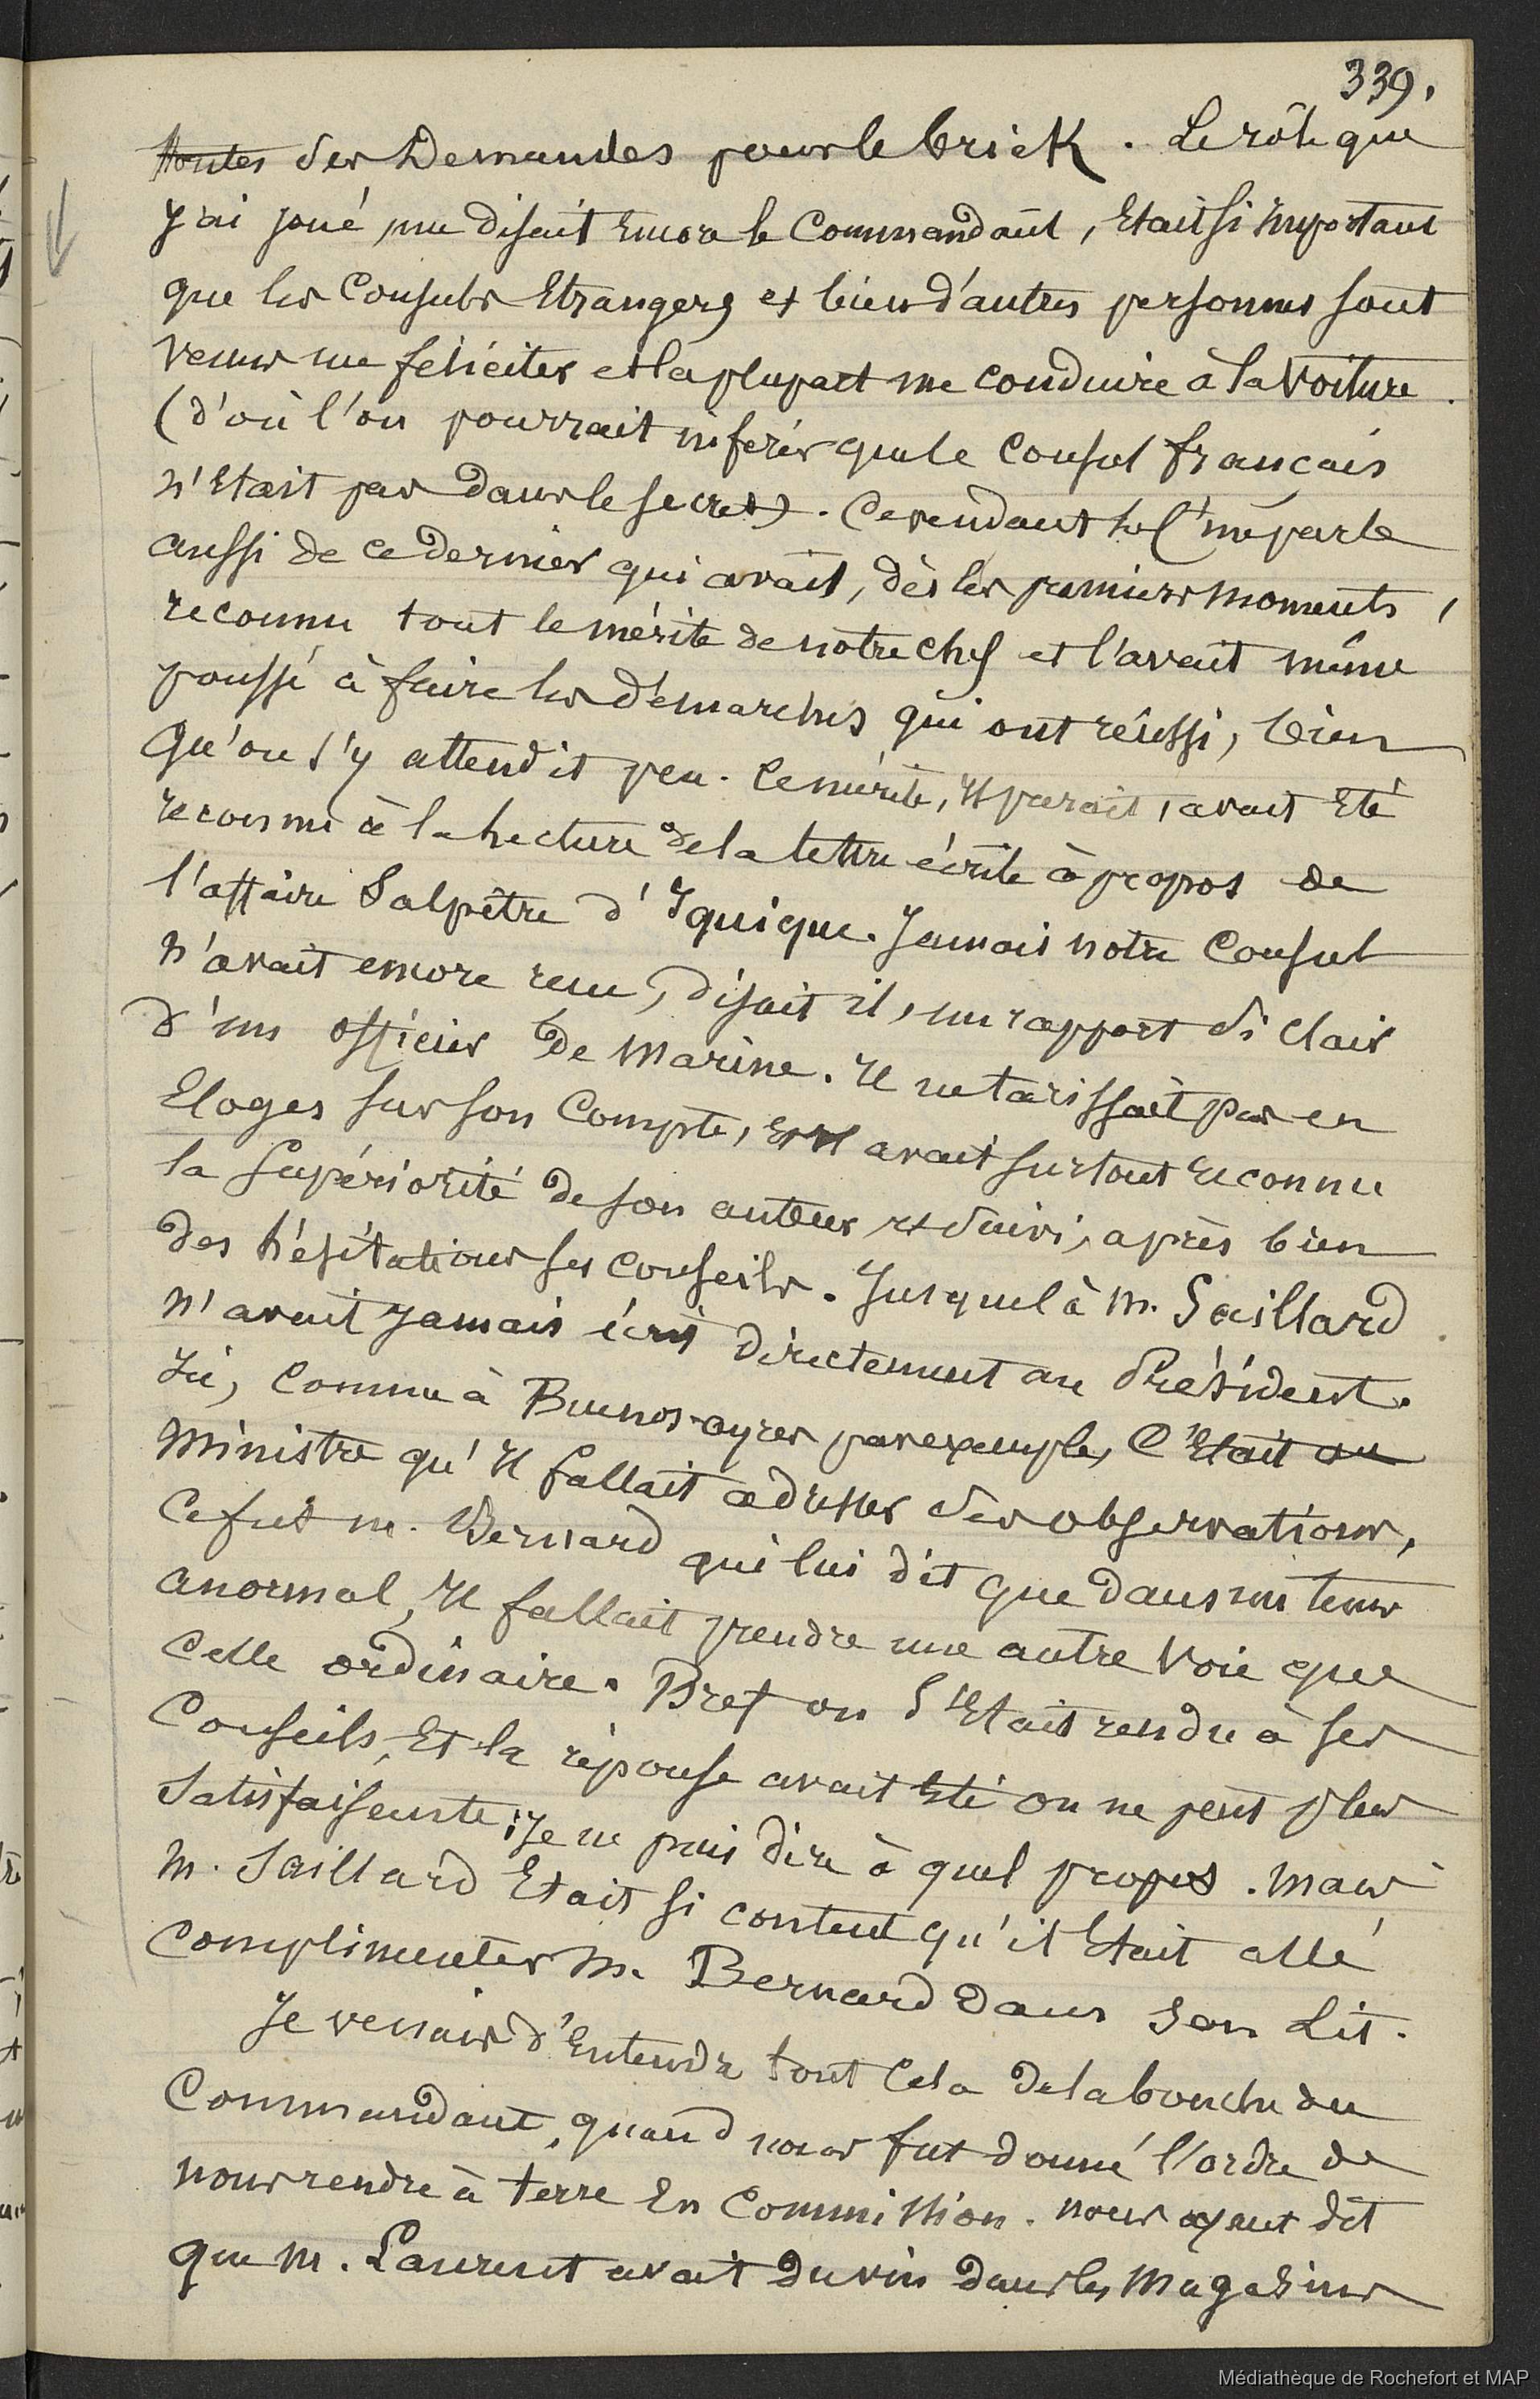 339.
toutes des Demandes pour le brick. Le rôle que
j'ai joué, me disait encore le Commandant, Etait si important
que les Consuls Etrangers et bien d'autres personnes sont
venus me féliciter et la plupart me conduire à la voiture.
(d'où l'on pourrait inférer que le Consul français
n'Etait pas dans le secret). Cependant me parle
aussi de ce dernier qui avait, dès les premiers moments,
reconnu tout le mérite de notre chef et l'avait même
poussé à faire les démarches qui ont réussi, bien
qu'on s'y attendit peu. Ce mérite, Il parait, avait Eté
reconnu à la lecture de la lettre écrite à propos de
l'affaire Salpêtre d'Iquique. Jamais notre Consul
n'avait encore reçu, disait il, un rapport si clair
d'un officier de Marine. Il ne tarissait pas en
Eloges sur son Compte, Et Il avait surtout reconnu
la supériorité de son auteur et suivi, après bien
des hésitations ses conseils. Jusque là M. Saillard
n'avait jamais écrit directement au Président.
Ici, comme à Buenos-ayres par exemple, C'Etait au
Ministre qu'Il fallait adresser des observations,
Ce fut M. Bernard qui lui dit que dans un tems
anormal, Il fallait prendre une autre voie que
celle ordinaire. Bref on s'Etait rendu à ses
Conseils, Et la réponse avait Eté on ne peut plus
satisfaisante; Je ne puis dire à quel propos. Mais
M. Saillard Etait si content qu'il Etait allé
complimenter M. Bernard dans son Lit.
Je venais d'Entendre tout cela de la bouche du
Commandant, quand nous fut donné l'ordre de
nous rendre à terre En Commission. nous ayant dit
que M. Laurent avait du vin dans les Magasins
Médiathèque de Rochefort et MAP